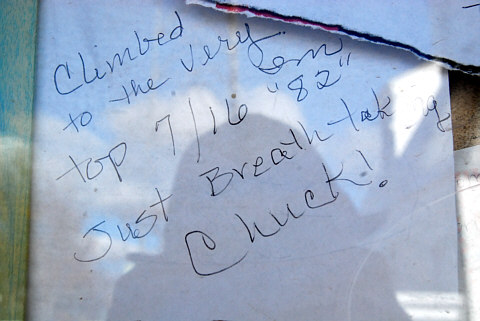 Climbed
to the very
top 7/16 "82"
Just Breathtaking
Chuck!